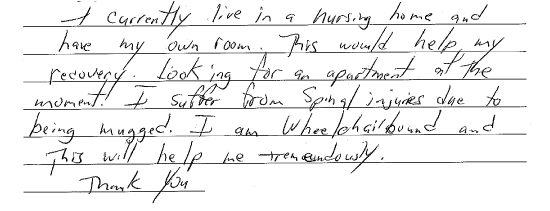 I currently live in a nursing home and
have my own room. This would help my
recovery. Looking for an apartment at the
moment! I suffer from Spinal injuries due to
being mugged. I am Wheelchairbound and
This will help me tremendously.
Thank You